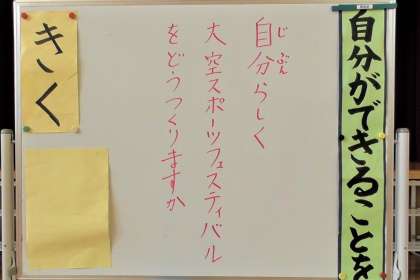 自分ができることを
じぶん
自分らしく
大空スポーツフェスティバル
をどうつくりますか
きく